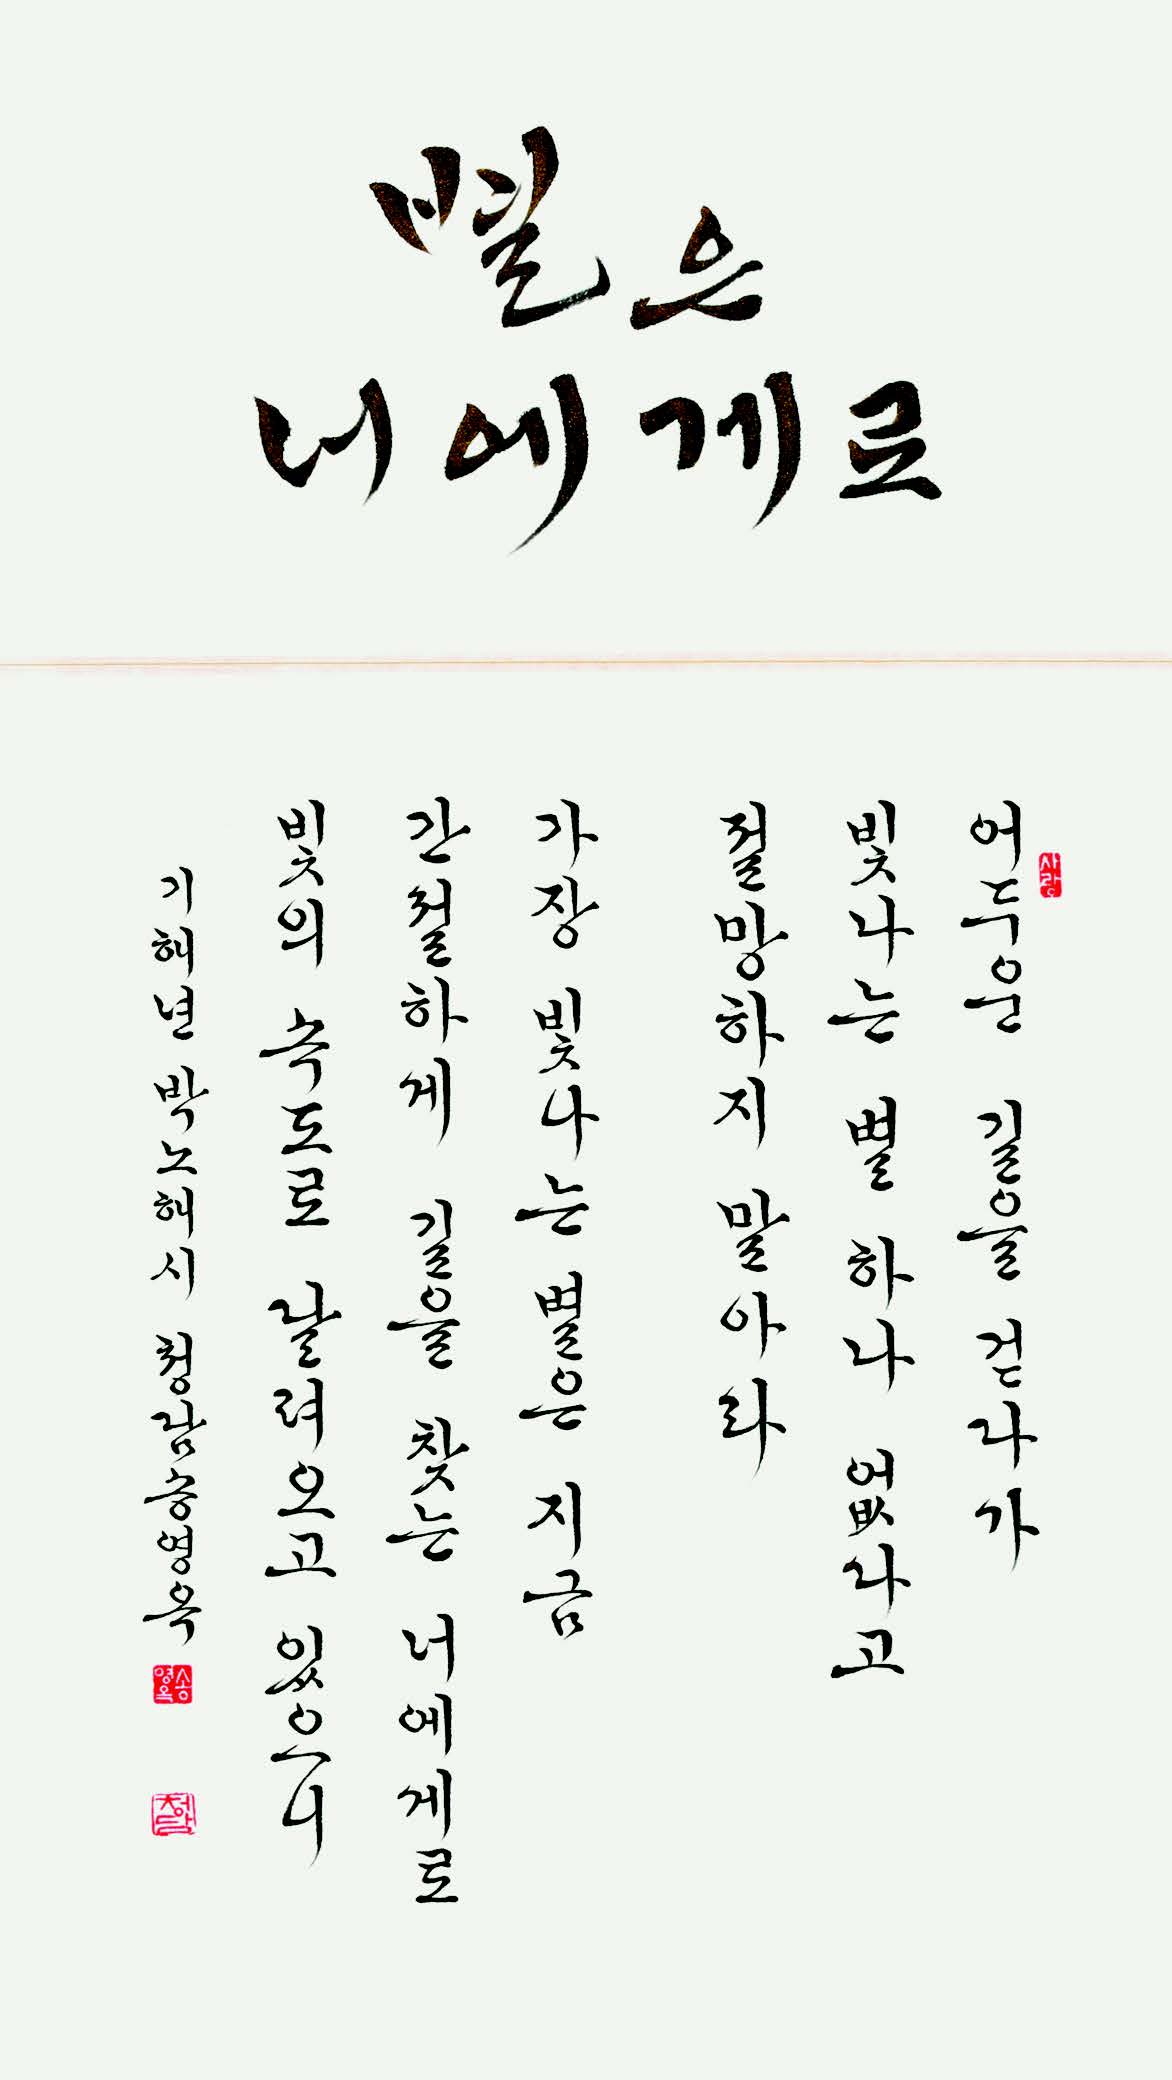 별은
너에게로
사랑
어두운 길을 걷다가
빛나는 별 하나 없다고
절망하지 말아라
가장 빛나는 별은 지금
간절하게 길을 찾는 너에게로
빛의 속도로 달려오고 있으니
기해년 박노해시 청람송영옥
송영옥
청람